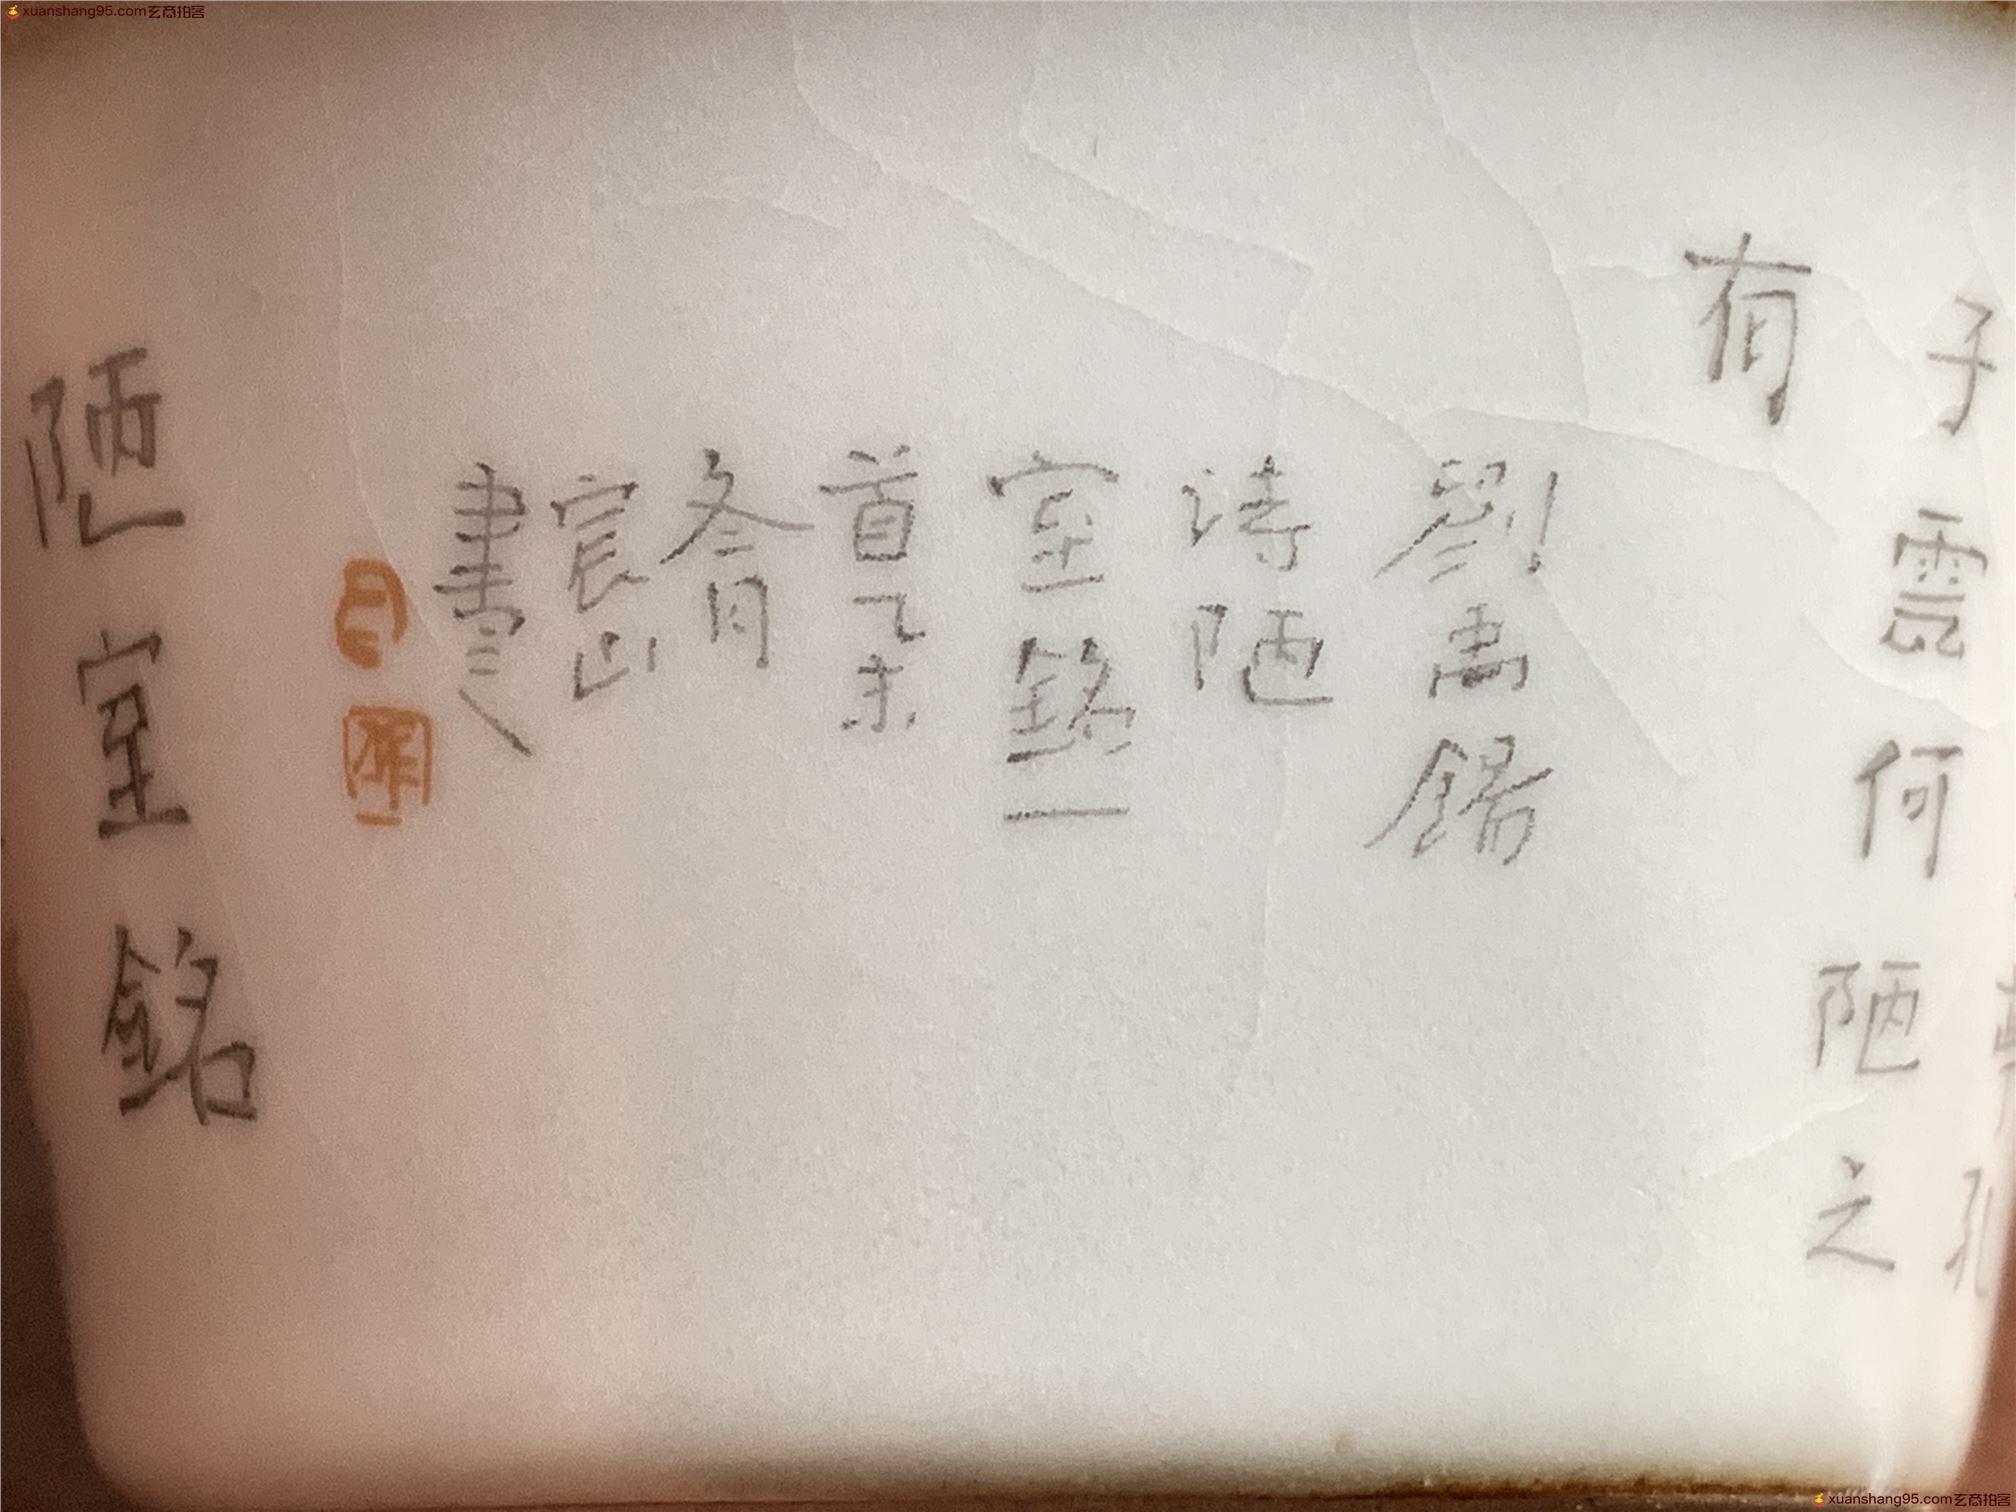 子雲何陋之
有
劉禹錫
诗陋
室銘一
首乙未
冬月
宸山
書
陋室銘
xuanshang95.com玄商拍客
xuanshang95.com玄商拍客